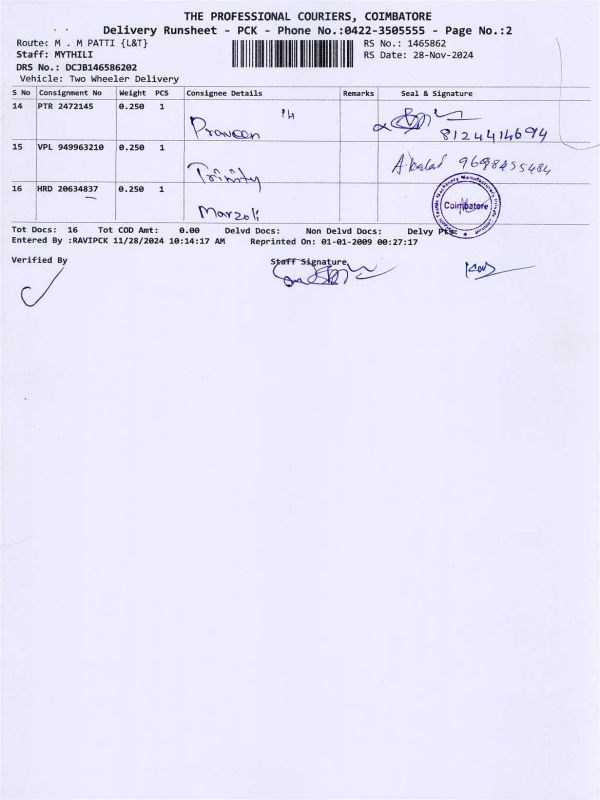 THE PROFESSIONAL COURIERS, COIMBATORE
Delivery Runsheet - PCK - Phone No.:0422-3505555 - Page No.:2
Route: M . M PATTI {L&T} RS No.: 1465862
Staff: MYTHILI RS Date: 28-Nov-2024
DRS No.: DCJB146586202
Vehicle: Two Wheeler Delivery
S No Consignment No Weight PCS Consignee Details Remarks Seal & Signature
14 PTR 2472145 0.250 1
Praveen 8124414694
15 VPL 949963210 0.250 1
Trinity 9698455484
16 HRD 20634837 0.250 1
Marzoli Coimbatore
Tot Docs: 16 Tot COD Amt: 0.00 Delvd Docs: Non Delvd Docs: Delvy
Entered By :RAVIPCK 11/28/2024 10:14:17 AM Reprinted On: 01-01-2009 00:27:17
Verified By Staff Signature